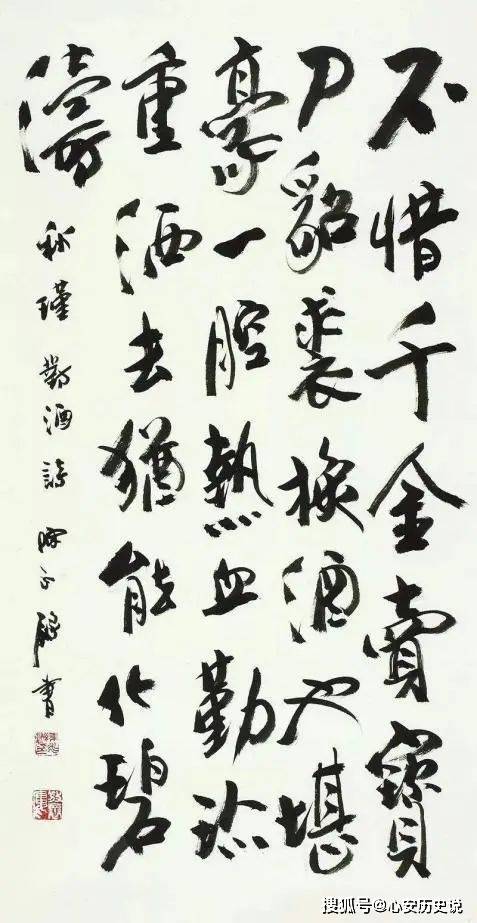 不惜千金賣寶
刀貂裘換酒也堪
豪一腔熱血勤珍
重洒去猶能化碧
濤
秋瑾對酒詩 書
搜狐号@心安历史说